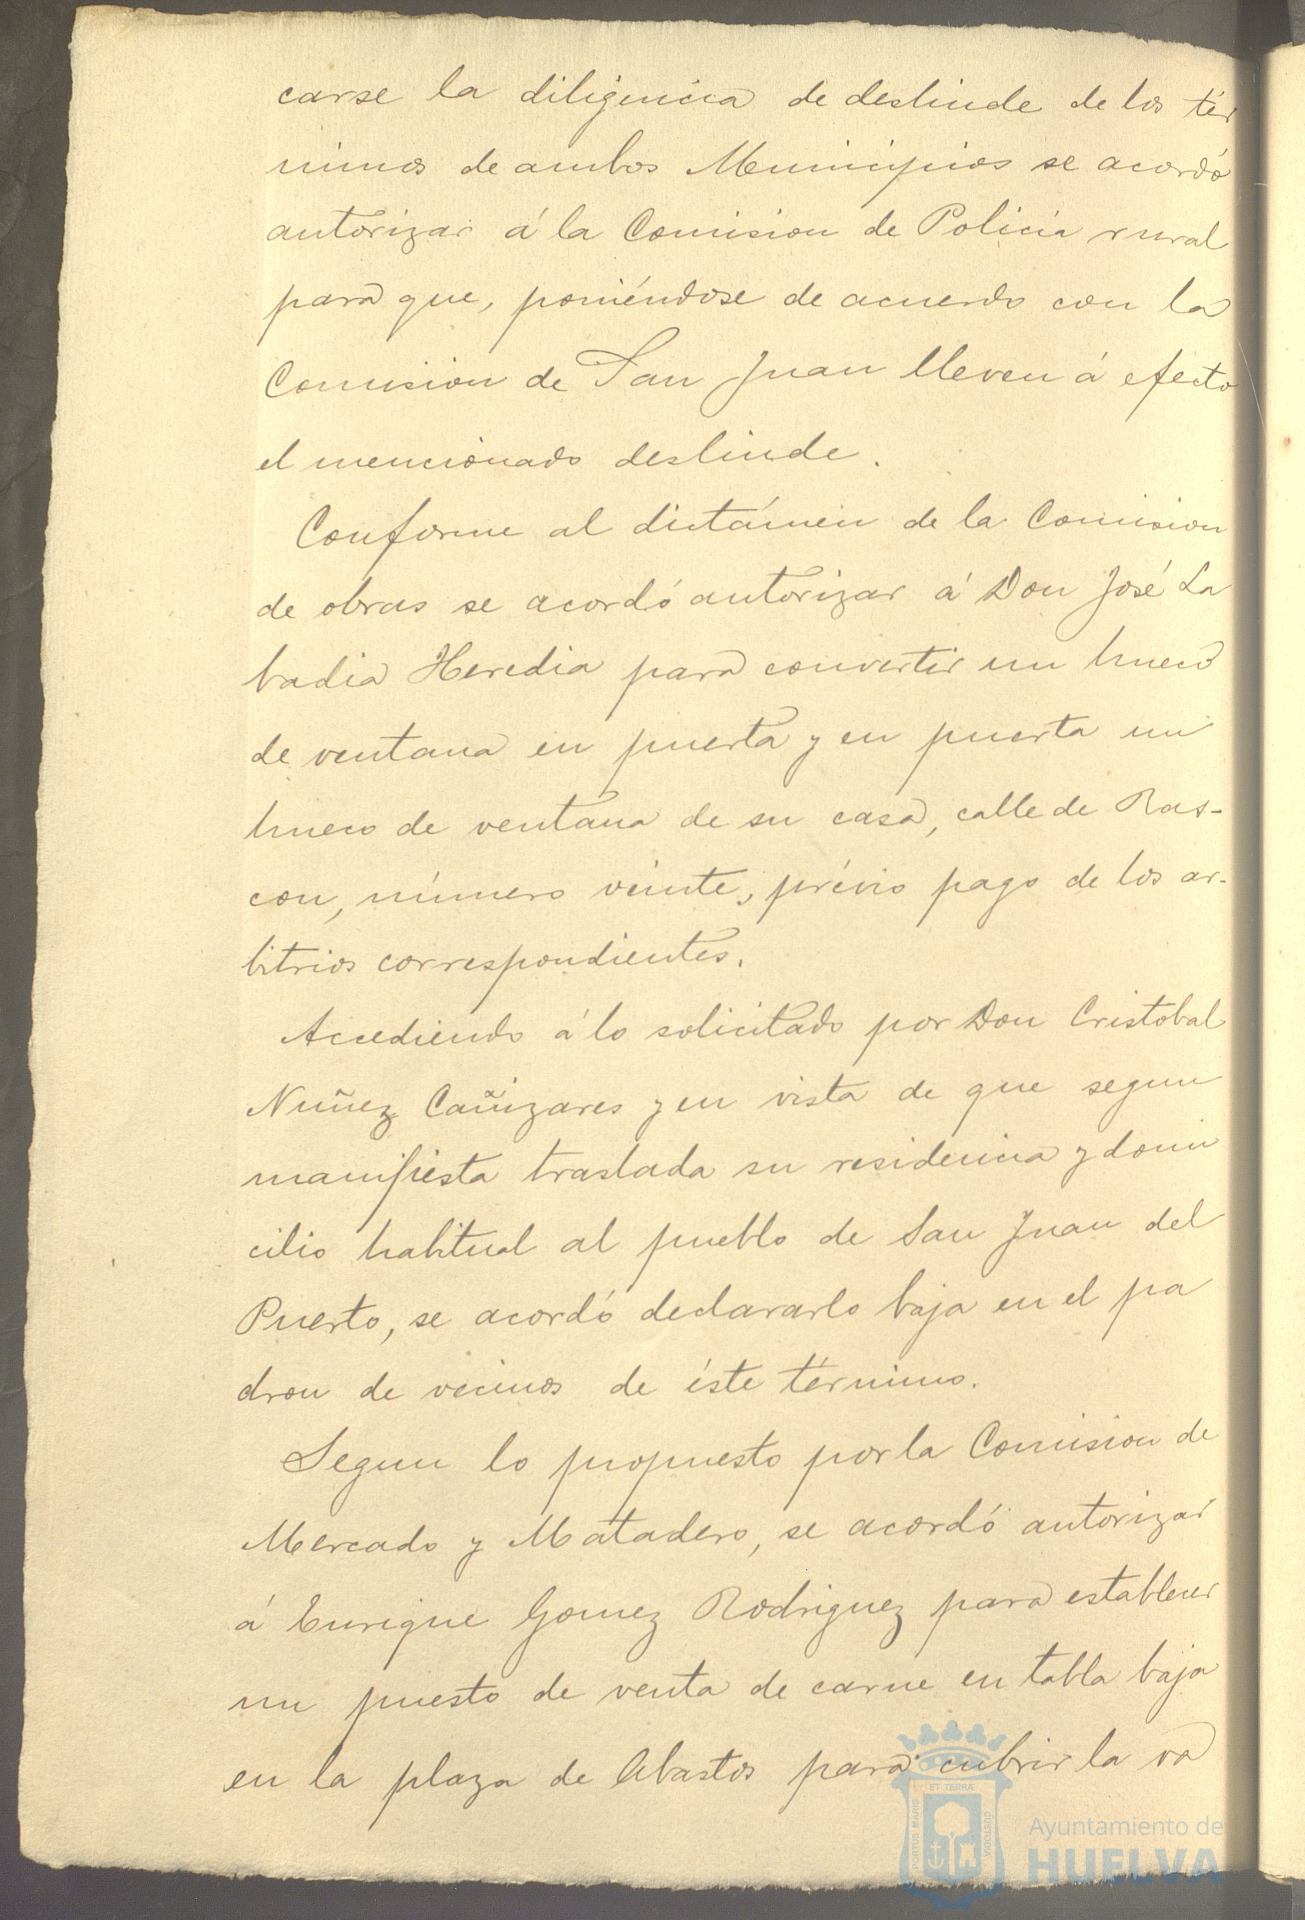 carse la diligencia de deslinde de los tér
minos de ambos Municipios se acordó
autorizar á la Comision de Policía rural
para que, poniéndose de acuerdo con la
Comision de San Juan lleven á efecto
el mencionado deslinde.
Conforme al dictámen de la Comision
de obras se acordó autorizar á Don José La
badia Heredia para convertir un hueco
de ventana en puerta y en puerta un
hueco de ventana de su casa, calle de Ras-
con, número veinte, prévio pago de los ar-
bitrios correspondientes.
Accediendo á lo solicitado por Don Cristobal
Nuñez Cañizares y en vista de que segun
manifiesta traslada su residencia y domi
cilio habitual al pueblo de San Juan del
Puerto, se acordó declararlo baja en el pa
dron de vecinos de éste término.
Segun lo propuesto por la Comision de
Mercado y Matadero, se acordó autorizar
á Enrique Gomez Rodriguez para establecer
un puesto de venta de carne en tabla baja
en la plaza de Abastos para cubrir la va
PORTUS MARIS ET TERRÆ CUSTODIA
Ayuntamiento de
HUELVA